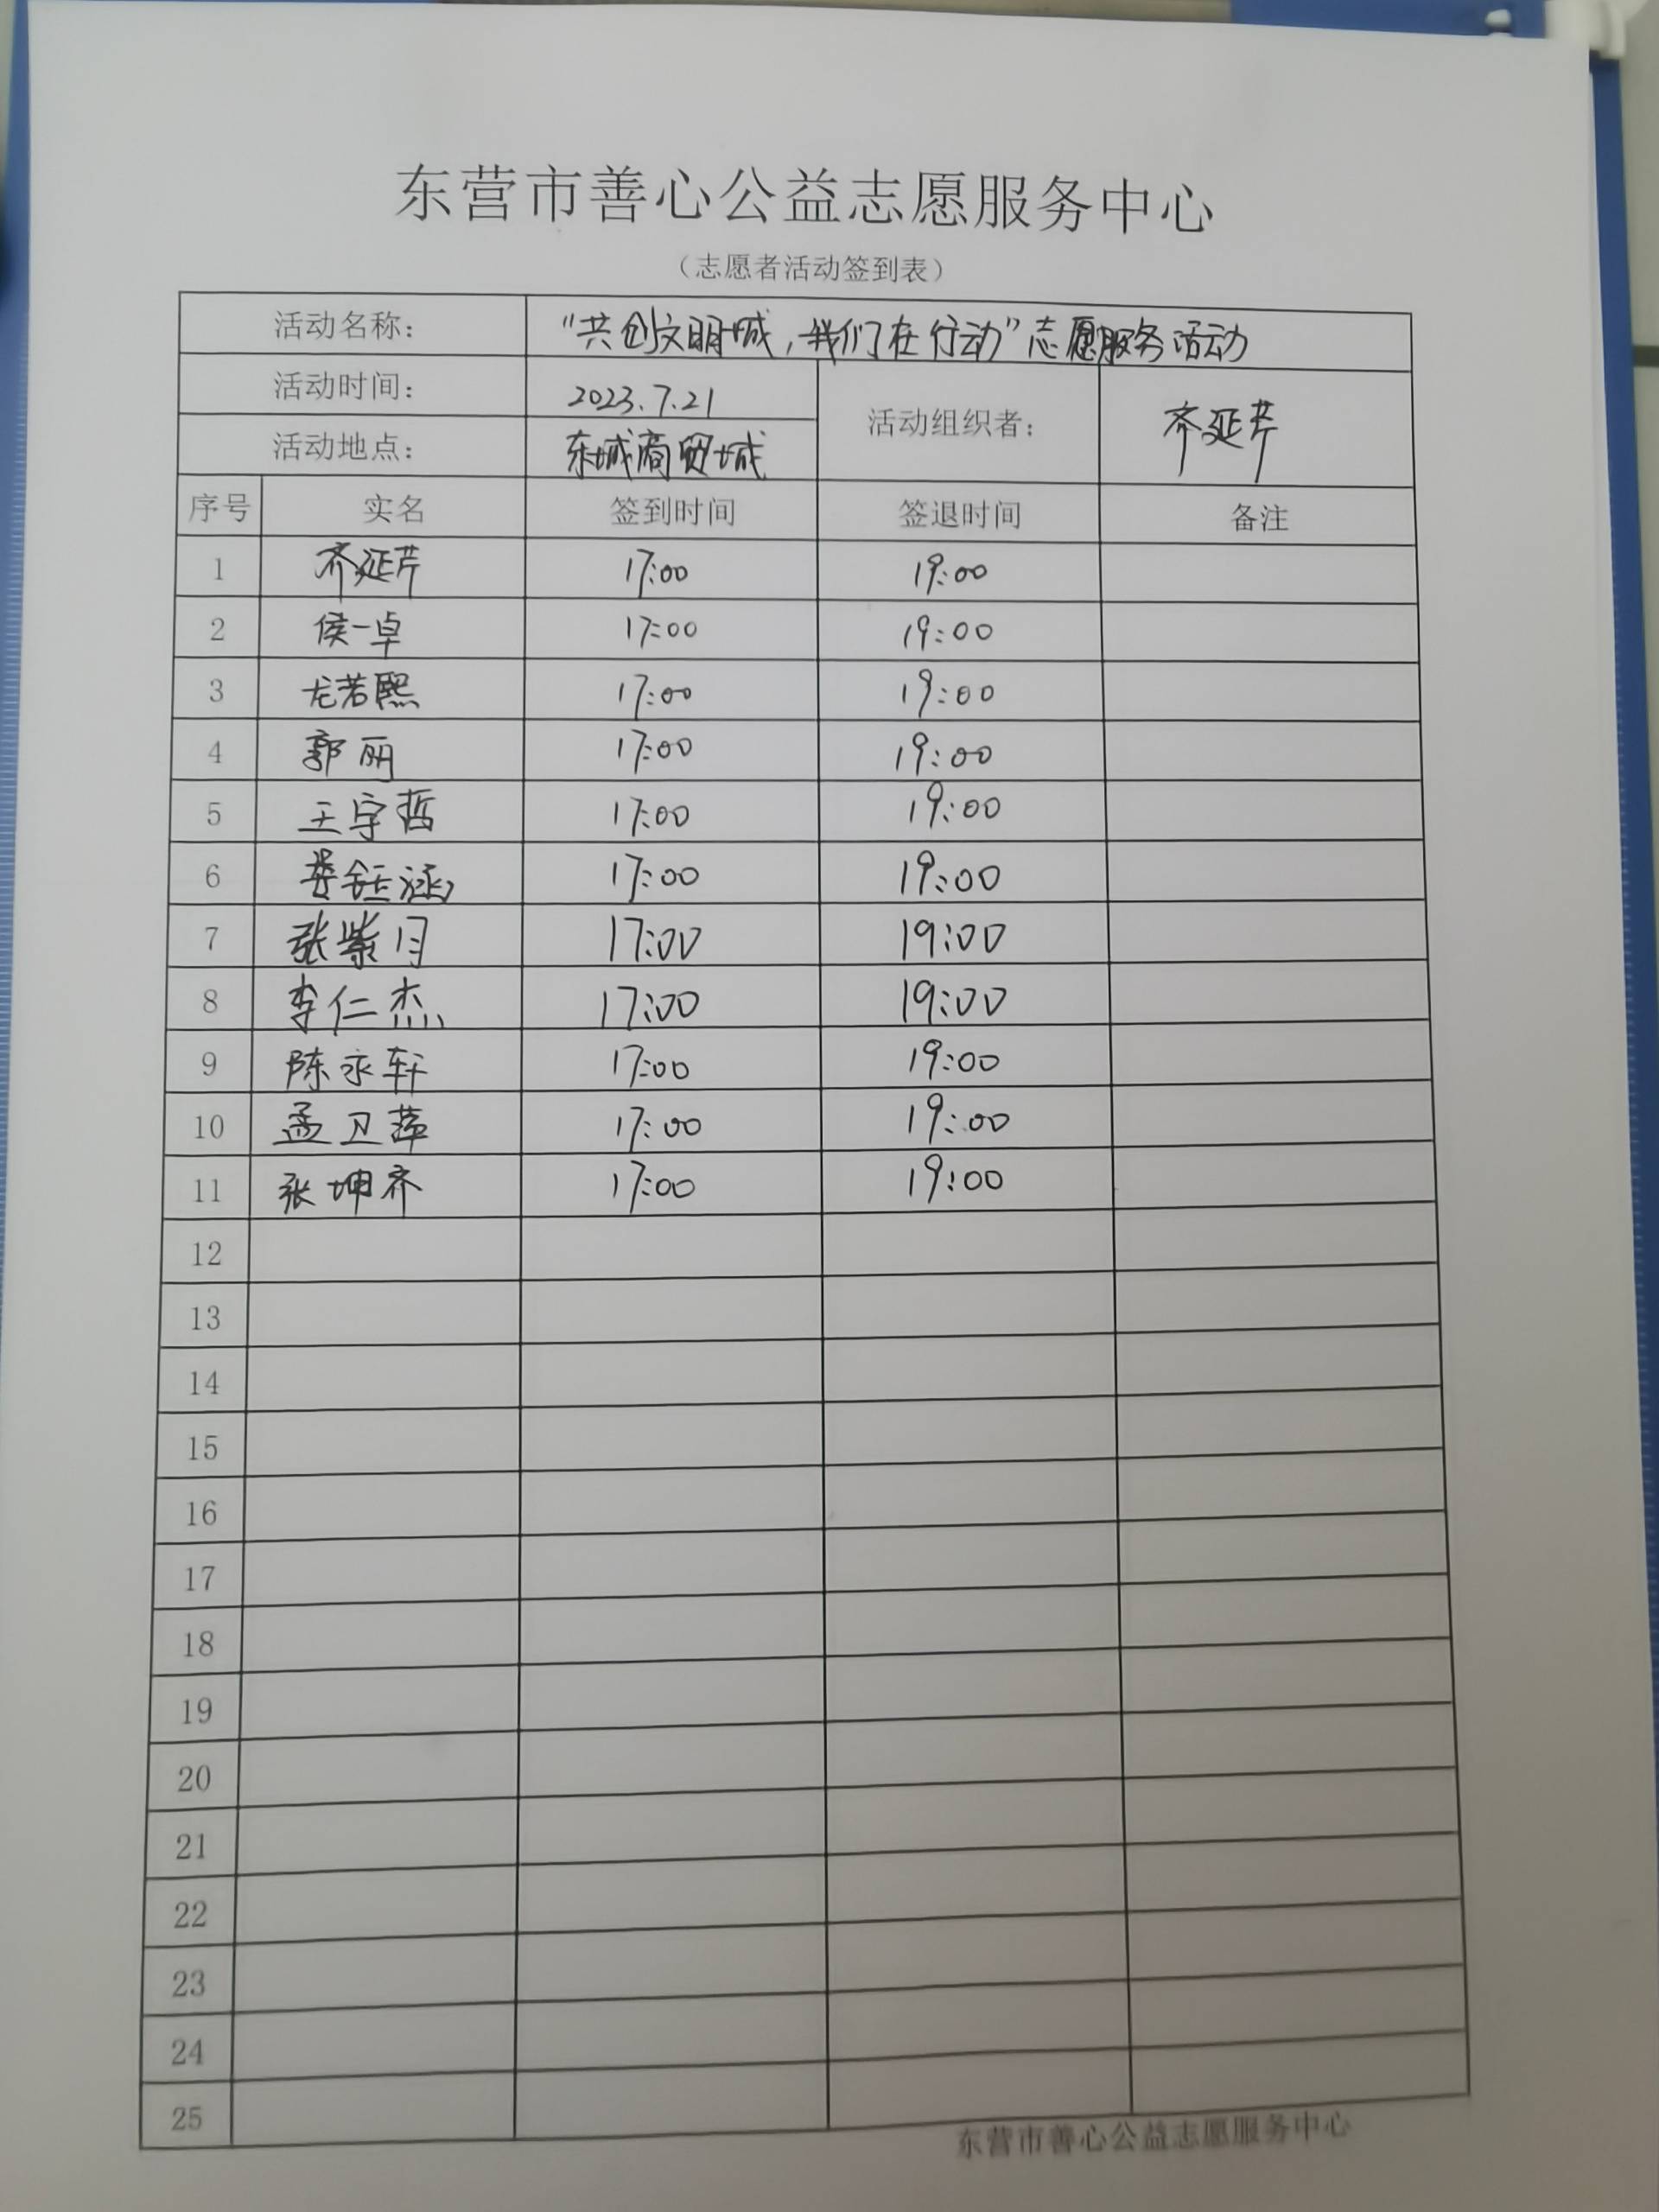 东营市善心公益志愿服务中心
（志愿者活动签到表）
活动名称： “共创文明城，我们在行动”志愿服务活动
活动时间： 2023.7.21 活动组织者： 齐延芹
活动地点： 东城商贸城
序号 实名 签到时间 签退时间 备注
1 齐延芹 17:00 19:00
2 侯一卓 17:00 19:00
3 尤若熙 17:00 19:00
4 郭丽 17:00 19:00
5 王宇哲 17:00 19:00
6 17:00 19:00
7 张紫月 17:00 19:00
8 李仁杰 17:00 19:00
9 陈永轩 17:00 19:00
10 孟卫萍 17:00 19:00
11 张坤齐 17:00 19:00
12
13
14
15
16
17
18
19
20
21
22
23
24
25
东营市善心公益志愿服务中心